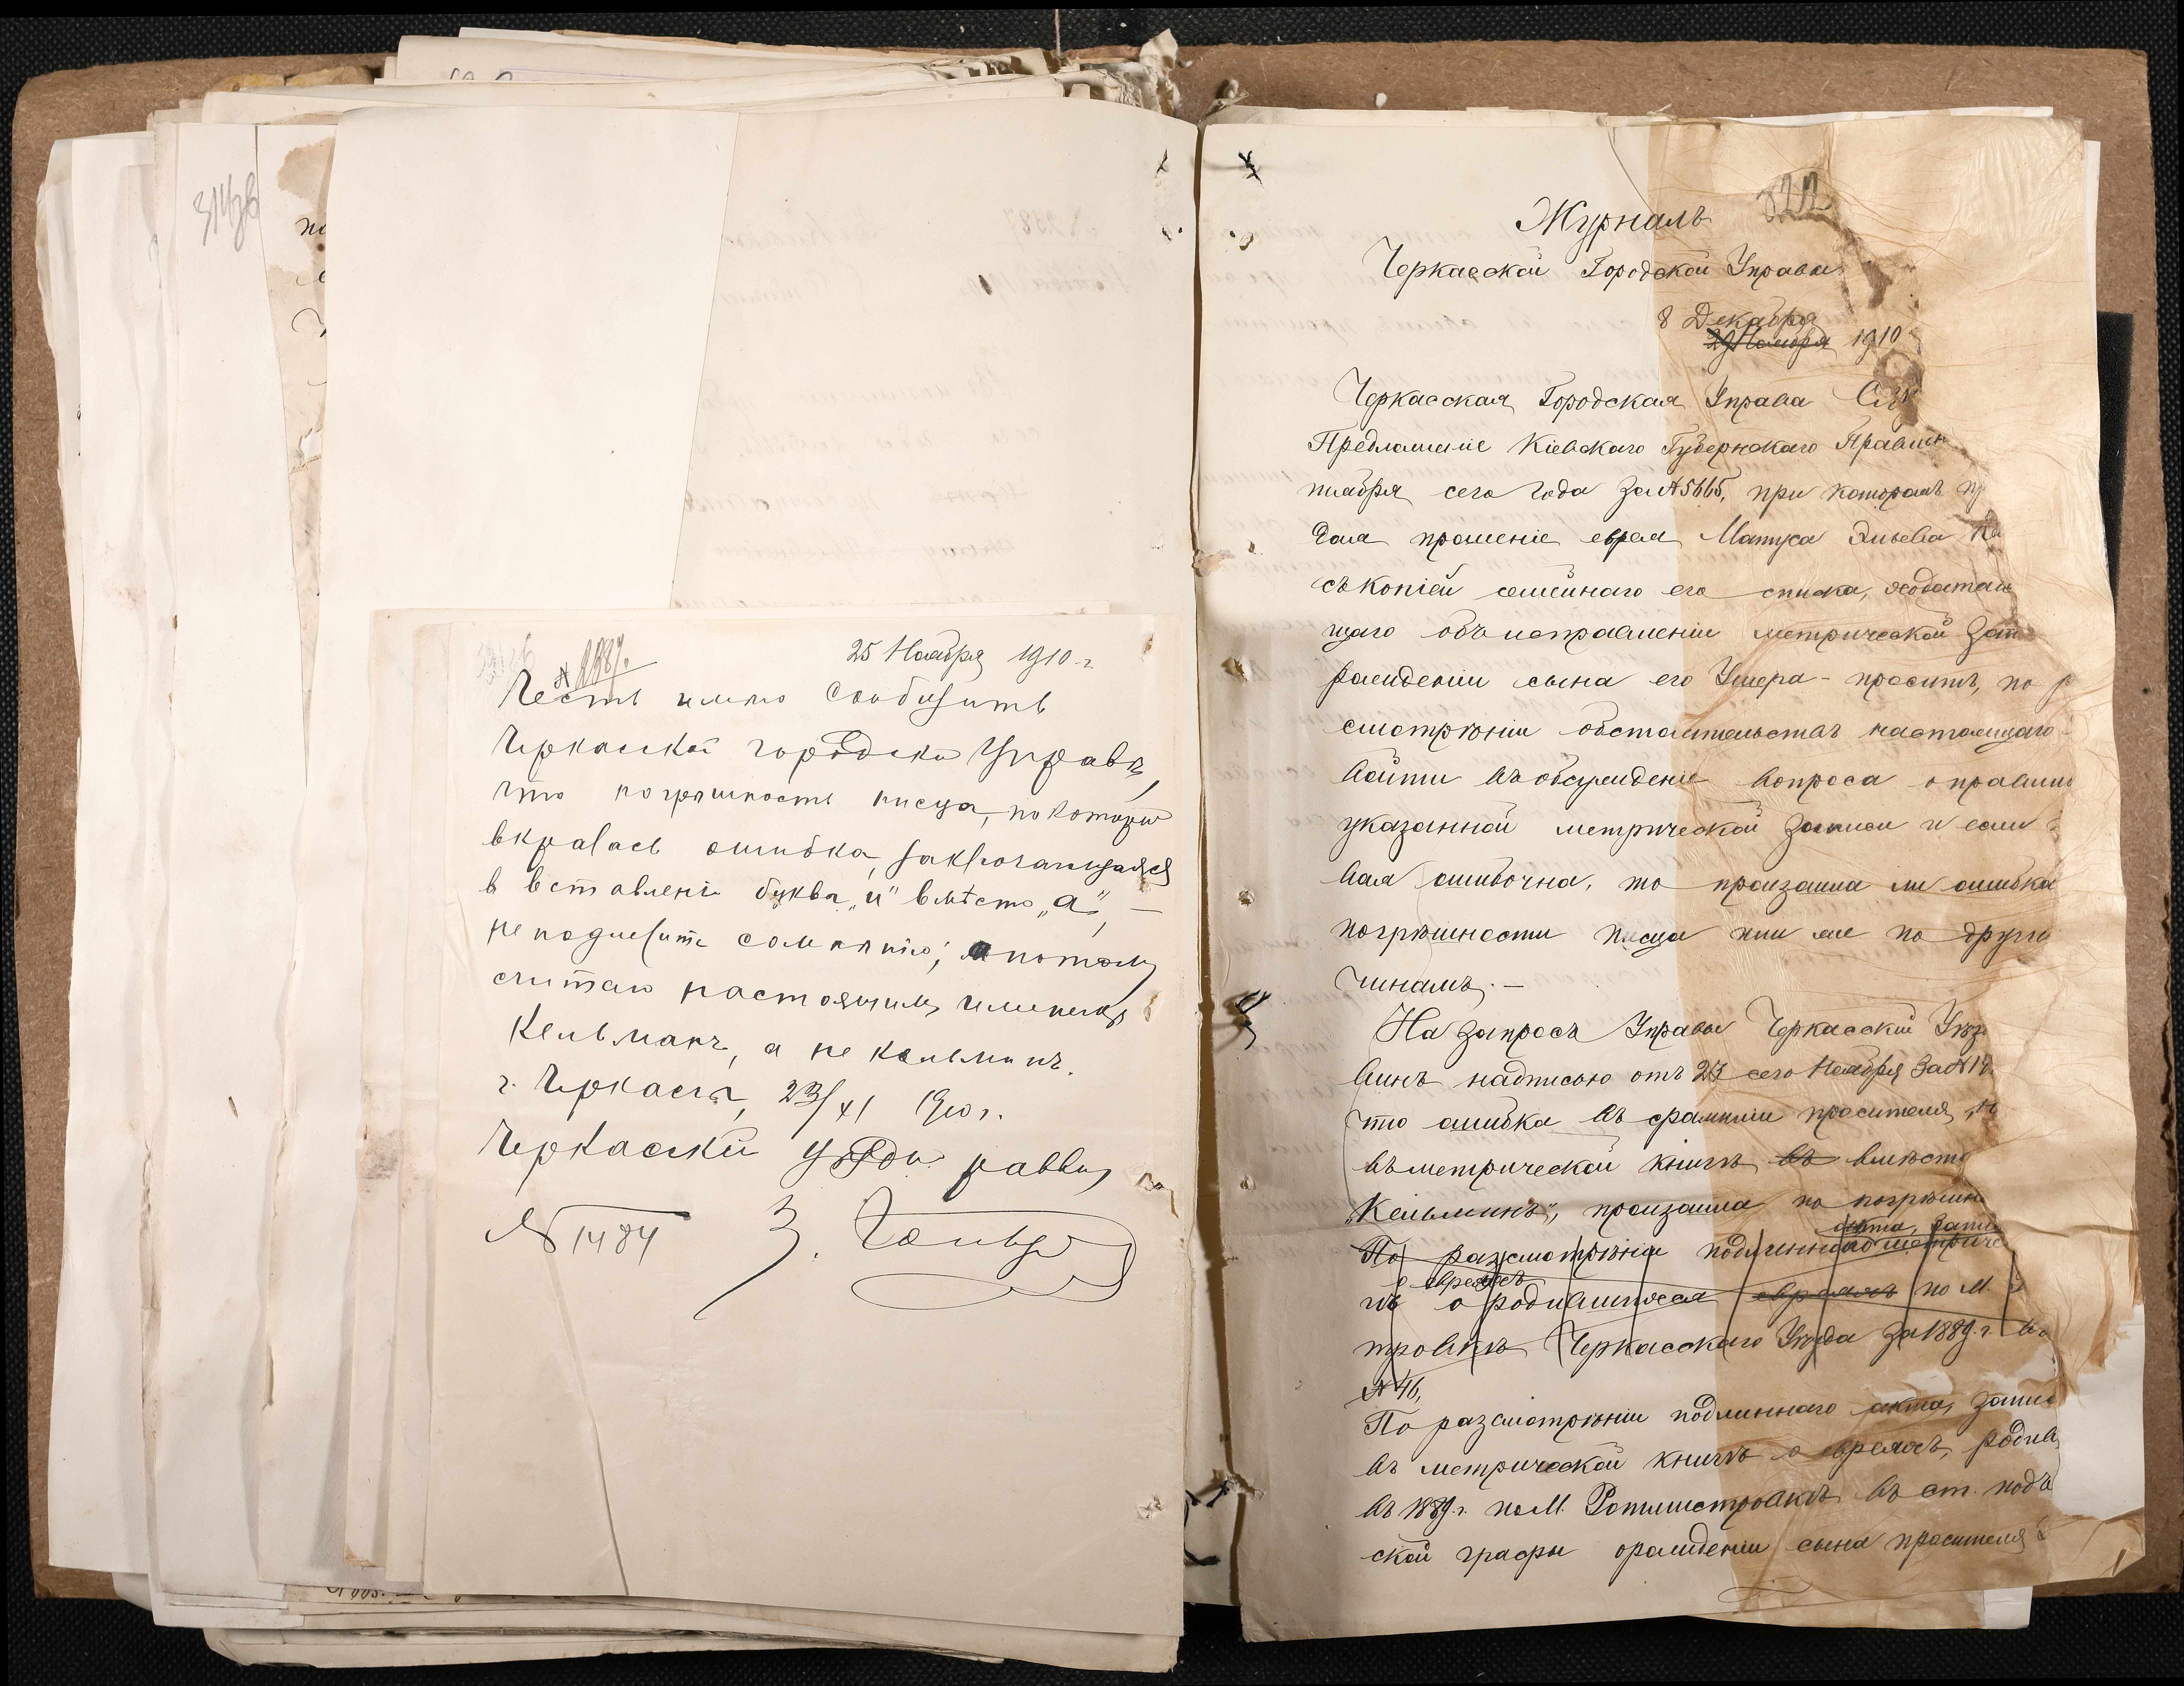 25 Ноября 1910 г.
Честь имѣю сообщить
Черкаской городской Управѣ,
что погрѣшность писца, по которой
вкралась ошибка, заключающаяся
в вставленіи буквы „и" вмѣсто „а", —
не подлежитъ сомнѣнію; а потому
считаю настоящимъ именемъ
Кельманъ, а не Кельминъ.
г. Черкасы, 23/XI 1910 г.
Черкаскій уѣздн. раввинъ
№ 1484
З.
314об
322
Журналъ
Черкасской Городской Управы
8 Декабря
29 Ноября 1910
Черкасская Городская Управа
Предложеніе Кіевскаго Губернскаго Правлен
тября сего года за № 5665, при которомъ пр
дала прошеніе еврея Матуса Эльева Ке
съ копіей семейнаго его списка, ходатай
щаго объ исправленіи метрической зап
рожденіи сына его Ушера - проситъ, по р
смотрѣніи обстоятельствъ настоящаго
войти въ обсужденіе вопроса о правиль
указанной метрической записи и если
вая ошибочна, то произошла ли ошибка
погрѣшности писца или же по други
чинамъ. —
На запросъ Управы Черкасскій Уѣз
винъ надписью отъ 23 сего Ноября за № 14
что ошибка въ фамиліи просителя „К
въ метрической книгѣ въ вмѣсто
„Кельминъ", произошла по погрѣшн
акта, запис
По разсмотрѣніи подлиннаго метриче
о евреяхъ
гѣ о родившихся евреяхъ по М.
тровкѣ Черкасскаго Уѣзда за 1889 г. въ
№ 46,
По разсмотрѣніи подлиннаго акта, запис
въ метрической книгѣ о евреяхъ, родив
въ 1889 г. по М. Ротмистровкѣ въ ст. подъ
ской графы о рожденіи сына просителя